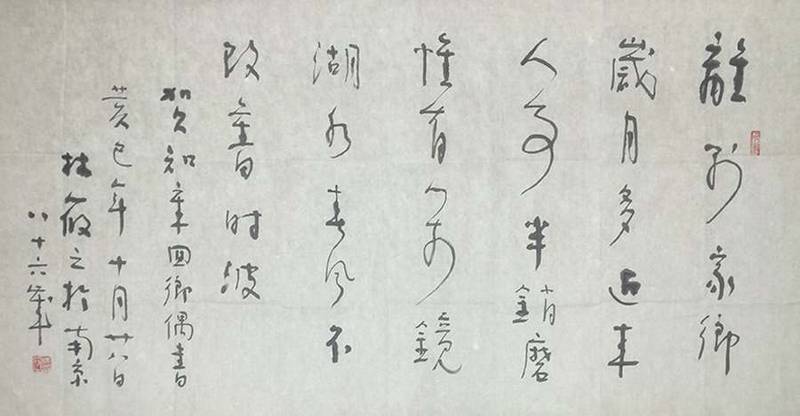 離別家鄉
歲月多近來
人事半銷磨
惟有門前鏡
湖水春風不
改舊时波
賀知章回鄉偶書
癸巳年十月廿八日
林筱之於南京
八十六